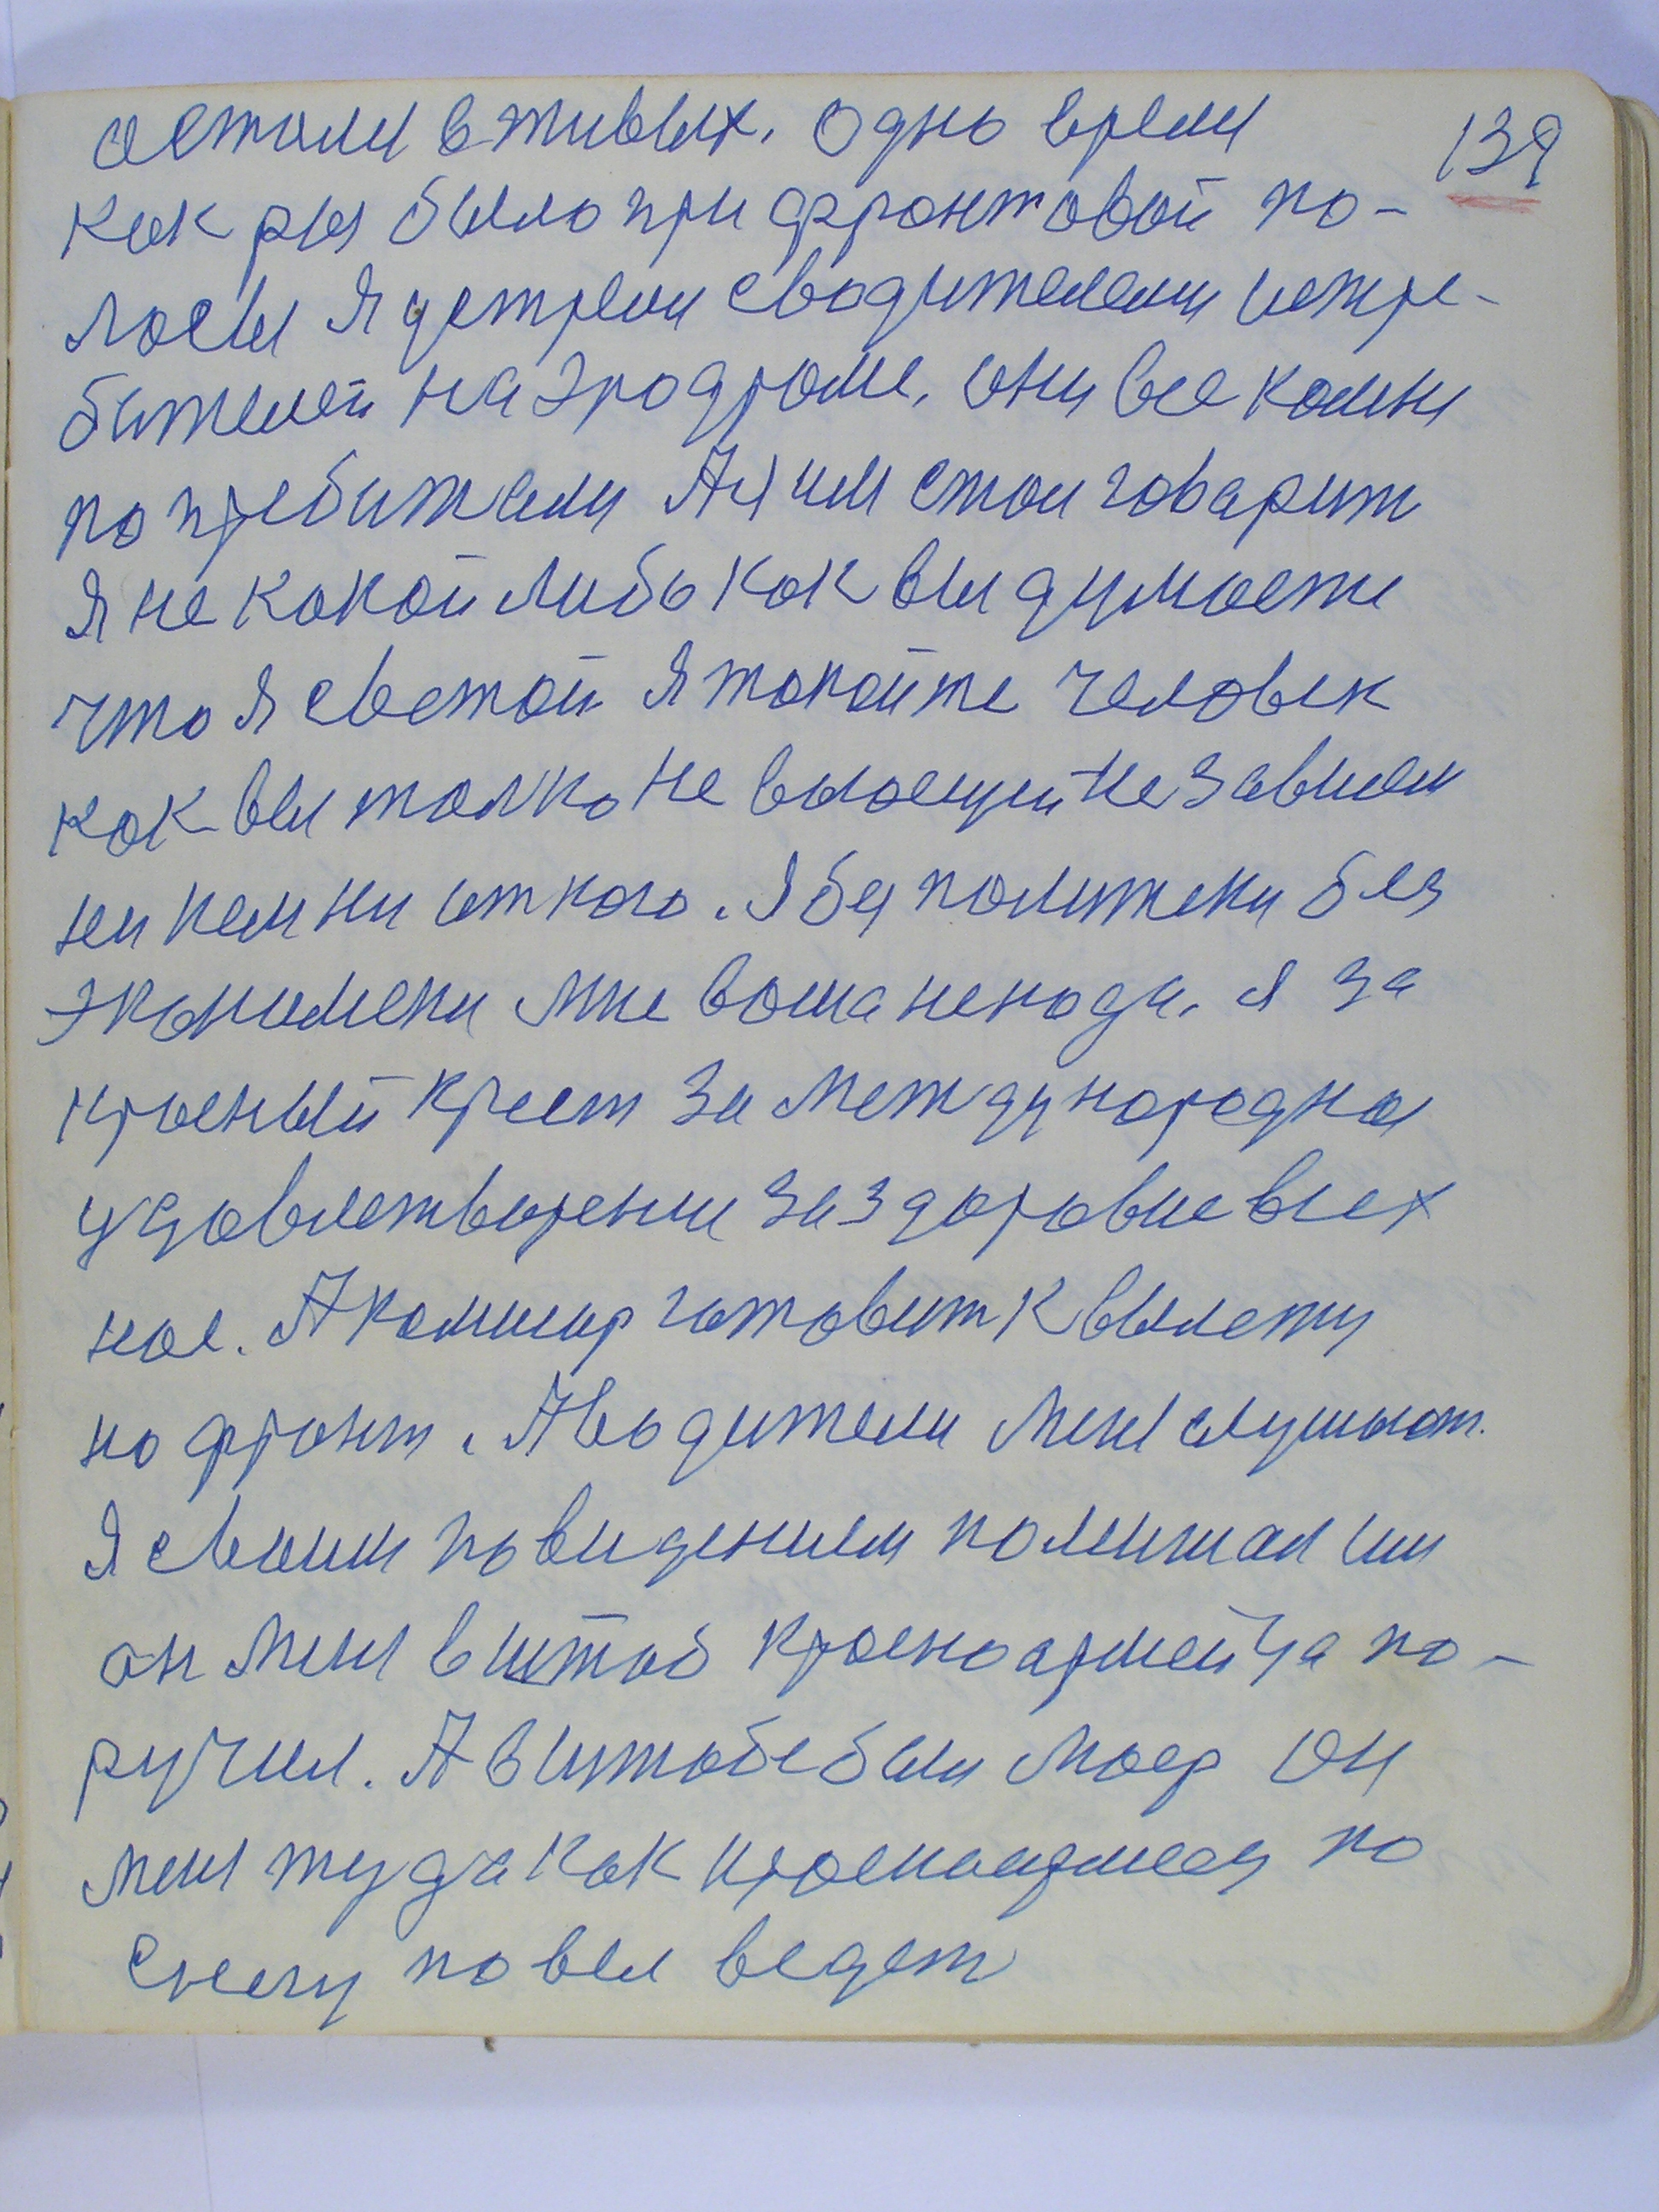 остали в живых. Одно время
139
как рас было при фронтовой по-
лосы Я устреси с водителеми истре-
бителей на эродроме. они все комни
по требители А я им стои говарит
Я не какой либо как вы думаете
что Я светой Я такой же человек
как вы толко не вающий не зависем
ни кем ни от кого. Я без политеки без
экономеки мне воша не нада. я за
красный крест за международна
удовлетворении за здоровие всех
нас. А комисар готовит к вылету
на фронт. А водители меня слушают.
Я своим повидением помишал им
он меня в штаб красноармейца по-
ручил. А в штабе был маер он
меня туда как красноармеец по
снегу повел ведет